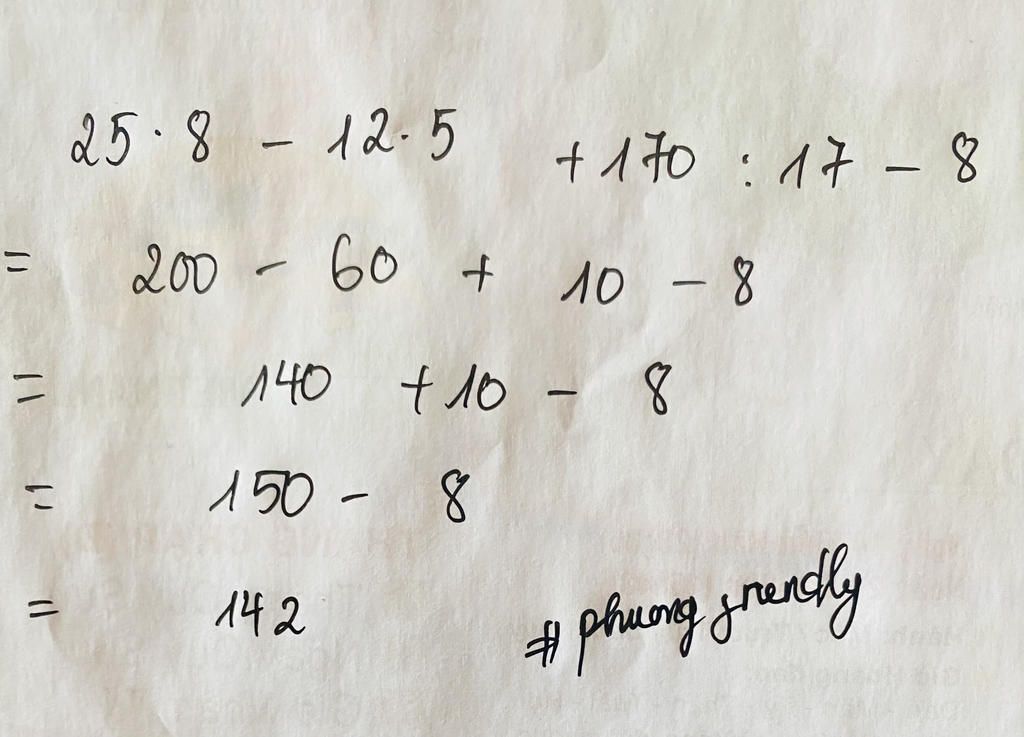 25 · 8 - 12 · 5 + 170 : 17 - 8
= 200 - 60 + 10 - 8
= 140 + 10 - 8
= 150 - 8
= 142
# phuong